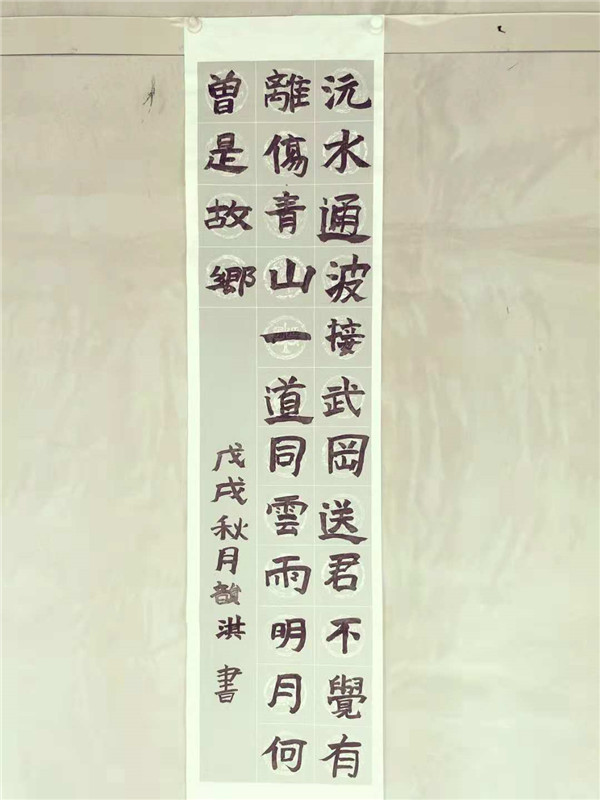 沅水通波接武岡送君不覺有
離傷青山一道同雲雨明月何
曾是故鄉
戊戌秋月洪書